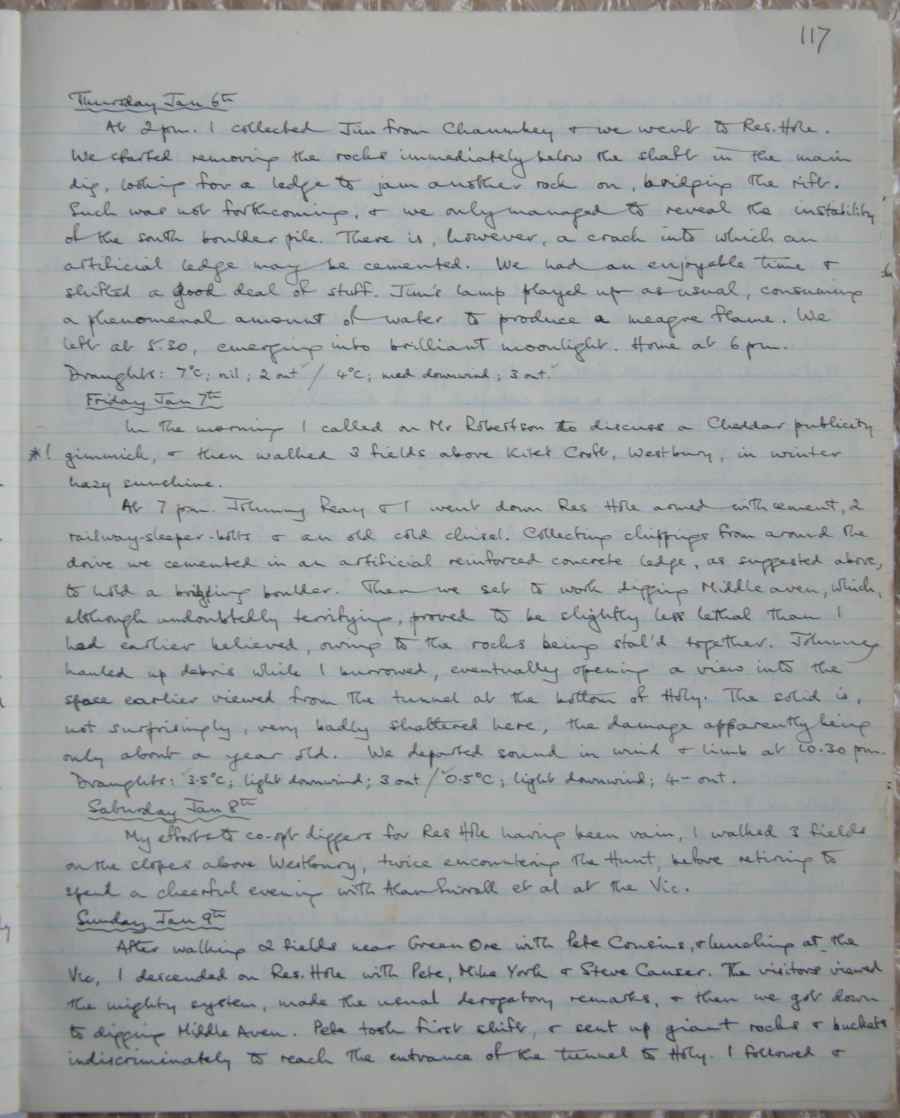 117
Thursday Jan 6th
At 2pm. I collected Jim from Chaumkey & we went to Res. Hole.
We started removing the rocks immediately below the shaft in the main
dig, looking for a ledge to jam another rock on, bridging the rift.
Such was not forthcoming, & we only managed to reveal the instability
of the south boulder pile. There is, however, a crack into which an
artificial ledge may be cemented. We had an enjoyable time &
shifted a good deal of stuff. Jim's lamp played up as usual, consuming
a phenomenal amount of water to produce a meagre flame. We
left at 5.30, emerging into brilliant moonlight. Home at 6 pm.
Draughts: 7°C; nil; 2 out / 4°C; med downwind; 3 out.
Friday Jan 7th
In the morning I called on Mr Robertson to discuss a Cheddar publicity
*! gimmick, & then walked 3 fields above Kites Croft, Westbury, in winter
hazy sunshine.
At 7 pm. Johnny Reay & I went down Res Hole armed with cement, 2
railway-sleeper-bolts & an old cold chisel. Collecting chippings from around the
drive we cemented in an artificial reinforced concrete ledge, as suggested above,
to hold a bridging boulder. Then we set to work digging Middle aven, which,
although undoubtedly terrifying, proved to be slightly less lethal than I
had earlier believed, owing to the rocks being stal'd together. Johnny
hauled up debris while I burrowed, eventually opening a view into the
space earlier viewed from the tunnel at the bottom of Holy. The solid is,
not surprisingly, very badly shattered here, the damage apparently being
only about a year old. We departed sound in wind & limb at 10.30 pm.
Draughts: 3.5°C; light downwind; 3 out / 0.5°C; light downwind; 4- out.
Saturday Jan 8th
My efforts to co-opt diggers for Res Hole having been vain, I walked 3 fields
on the slopes above Westbury, twice encountering the Hunt, before retiring to
spend a cheerful evening with Alan et al at the Vic.
Sunday Jan 9th
After walking 2 fields near Green Ore with Pete Cousins, & lunching at the
Vic, I descended on Res. Hole with Pete, Mike York & Steve Causer. The visitors viewed
the mighty system, made the usual derogatory remarks, & then we got down
to digging Middle Aven. Pete took first shift, & sent up giant rocks & buckets
indiscriminately to reach the entrance of the tunnel to Holy. I followed &